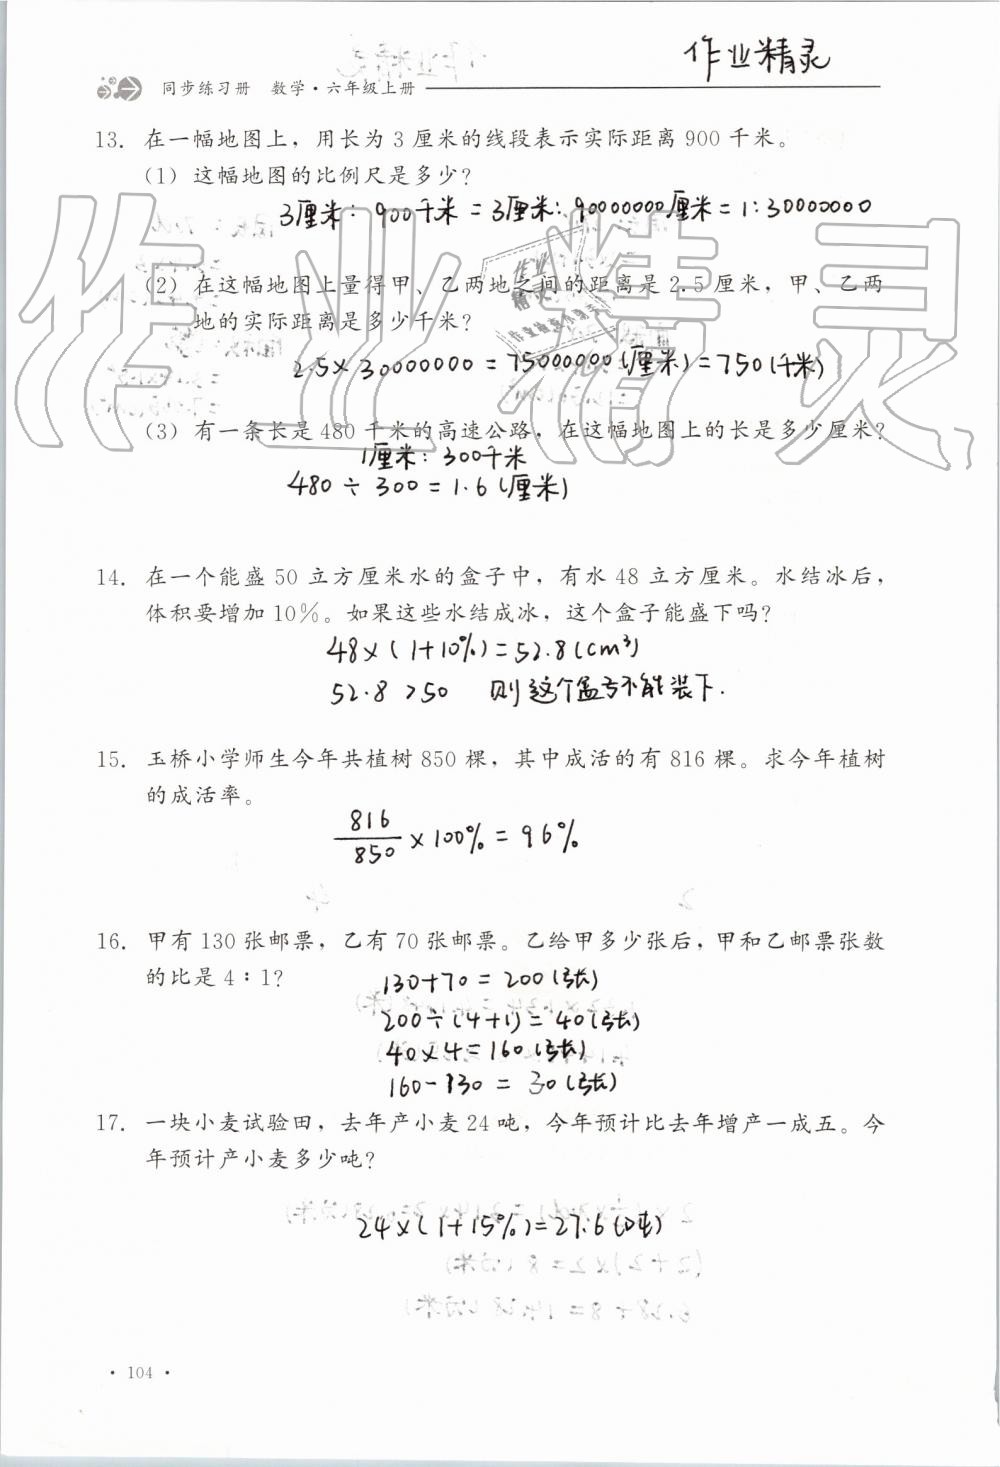 作业精灵
同步练习册 数学·六年级上册
13. 在一幅地图上，用长为3厘米的线段表示实际距离900千米。
(1) 这幅地图的比例尺是多少？
3厘米：900千米=3厘米：90000000厘米=1:30000000
(2) 在这幅地图上量得甲、乙两地之间的距离是2.5厘米，甲、乙两
地的实际距离是多少千米？
2.5×30000000=75000000(厘米)=750(千米)
(3) 有一条长是480千米的高速公路，在这幅地图上的长是多少厘米？
1厘米：300千米
480÷300=1.6(厘米)
14. 在一个能盛50立方厘米水的盒子中，有水48立方厘米。水结冰后，
体积要增加10%。如果这些水结成冰，这个盒子能盛下吗？
48×(1+10%)=52.8(cm³)
52.8>50 则这个盒子不能装下.
15. 玉桥小学师生今年共植树850棵，其中成活的有816棵。求今年植树
的成活率。
816/850×100%=96%
16. 甲有130张邮票，乙有70张邮票。乙给甲多少张后，甲和乙邮票张数
的比是4∶1？
130+70=200(张)
200÷(4+1)=40(张)
40×4=160(张)
160-130=30(张)
17. 一块小麦试验田，去年产小麦24吨，今年预计比去年增产一成五。今
年预计产小麦多少吨？
24×(1+15%)=27.6(吨)
·104·
作业精灵